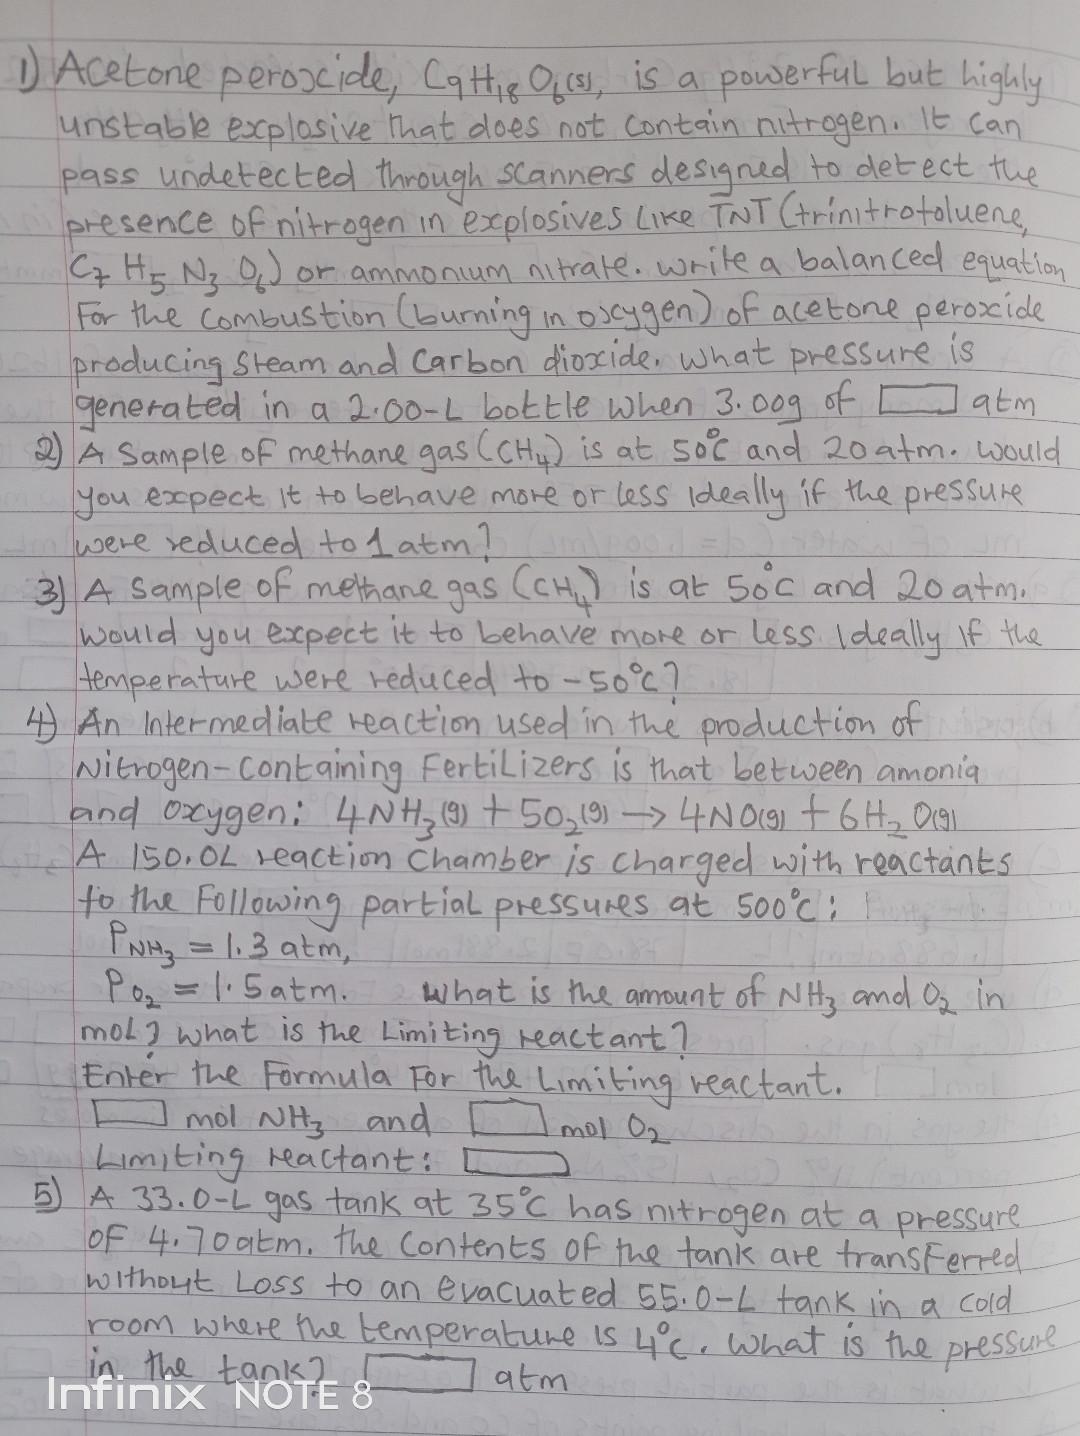 1) Acetone peroxide, C9H18O6(s), is a powerful but highly
unstable explosive that does not contain nitrogen. It can
pass undetected through scanners designed to detect the
presence of nitrogen in explosives like TNT (trinitrotoluene,
C7 H5 N3 O6) or ammonium nitrate. write a balanced equation
For the combustion (burning in oxygen) of acetone peroxide
producing steam and carbon dioxide. what pressure is
generated in a 2.00-L bottle when 3.00g of atm
2) A Sample of methane gas (CH4) is at 50°C and 20 atm. would
you expect it to behave more or less ideally if the pressure
were reduced to 1 atm?
3) A sample of methane gas (CH4) is at 50°C and 20 atm.
would you expect it to behave more or less Ideally if the
temperature were reduced to -50°C?
4) An Intermediate reaction used in the production of
Nitrogen-Containing Fertilizers is that between amonia
and oxygen: 4NH3(g) + 5O2(g) → 4NO(g) + 6H2O(g)
A 150.0L reaction chamber is charged with reactants
to the Following partial pressures at 500°C:
PNH3 = 1.3 atm,
PO2 = 1.5 atm. what is the amount of NH3 and O2 in
mol? what is the limiting reactant?
Enter the Formula For the Limiting reactant.
mol NH3 and mol O2
Limiting reactant:
5) A 33.0-L gas tank at 35°C has nitrogen at a pressure
of 4.70atm. the contents of the tank are transferred
without Loss to an evacuated 55.0-L tank in a cold
room where the temperature is 4°C. what is the pressure
in the tank? atm
Infinix NOTE 8